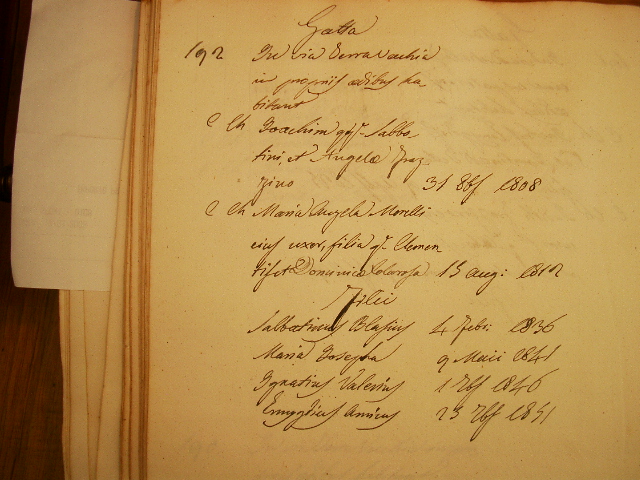 Gatta
192 In via Terravechia
in propriis ædibus ha-
bitant
C Ch Joachim qq.m Sabba-
tini, et Angelæ Fraz-
zino 31 8bf 1808
C Ch Maria Angela Morelli
eius uxor, filia q.m Clemen
tis et Dominica 15 aug: 1812
Filii
Sabbatinus Blasius 4 Feb: 1836
Maria Josepha 9 Maii 1841
Ignatius Valerius 1 7bf 1846
Emygdius Amicus 23 7bf 1851